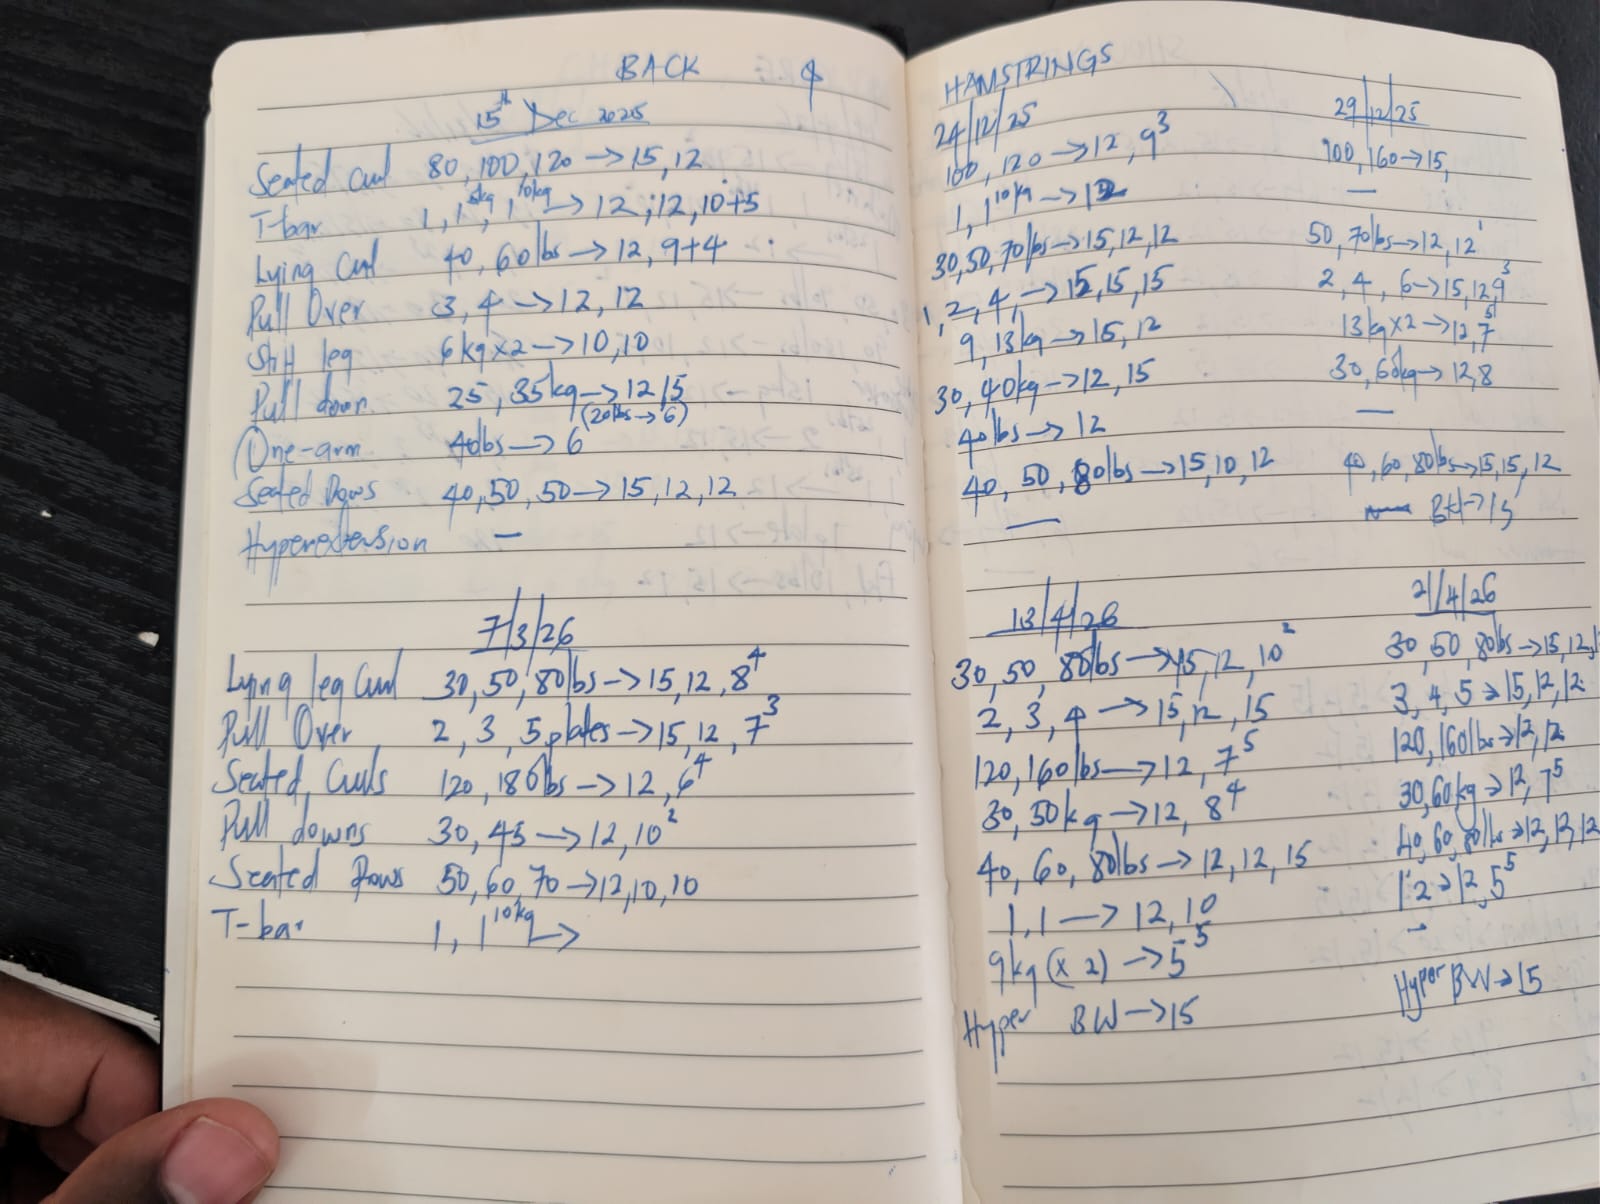 BACK & HAMSTRINGS
15th Dec 2025 24/12/25 29/12/25
Seated Curl 80, 100, 120 → 15, 12 100, 120 → 12, 9³ 100, 160 → 15,
T-bar 1, 1 5kg, 1 10kg → 12, 12, 10+5 1, 1 10kg → 12 —
Lying Curl 40, 60lbs → 12, 9+4 30, 50, 70lbs → 15, 12, 12 50, 70lbs → 12, 12
Pull Over 3, 4 → 12, 12 1, 2, 4, → 15, 15, 15 2, 4, 6 → 15, 12, 9³
Stiff leg 6kg x2 → 10, 10 9, 13kg → 15, 12 13kg x2 → 12, 7⁵
Pull down 25, 35kg → 12 15 30, 40kg → 12, 15 30, 60kg → 12, 8
(20lbs → 6)
One-arm 40lbs → 6 40lbs → 12 —
Seated Rows 40, 50, 50 → 15, 12, 12 40, 50, 80lbs → 15, 10, 12 40, 60, 80lbs → 15, 15, 12
Hyperextension — — → 15
7/3/26 13/4/26 21/4/26
Lying leg Curl 30, 50, 80lbs → 15, 12, 8⁴ 30, 50, 80lbs → 15, 12, 10² 30, 50, 80lbs → 15, 12,
Pull Over 2, 3, 5 plates → 15, 12, 7³ 2, 3, 4 → 15, 12, 15 3, 4, 5 → 15, 12, 12
Seated Curls 120, 180lbs → 12, 6⁴ 120, 160lbs → 12, 7⁵ 120, 160lbs → 12, 12
Pull downs 30, 45 → 12, 10² 30, 50kg → 12, 8⁴ 30, 60kg → 12, 7⁵
Seated Rows 50, 60, 70 → 12, 10, 10 40, 60, 80lbs → 12, 12, 15 40, 60, 80lbs → 12, 12, 12
T-bar 1, 1 10kg → 1, 1 → 12, 10 1, 2 → 12, 5⁵
9kg (x 2) → 5⁵ –
Hyper BW → 15 Hyper BW → 15